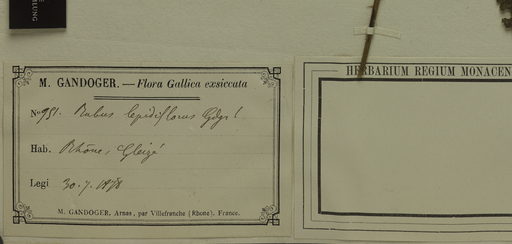 LUNG
M. GANDOGER. — Flora Gallica exsiccata
HERBARIUM REGIUM MONACEN
No 951. Rubus lepidiflorus Gdgr!
Hab. Rhône, Gleizé
Legi 30.7.1878
M. GANDOGER. Arnas, par Villefranche (Rhone). France.